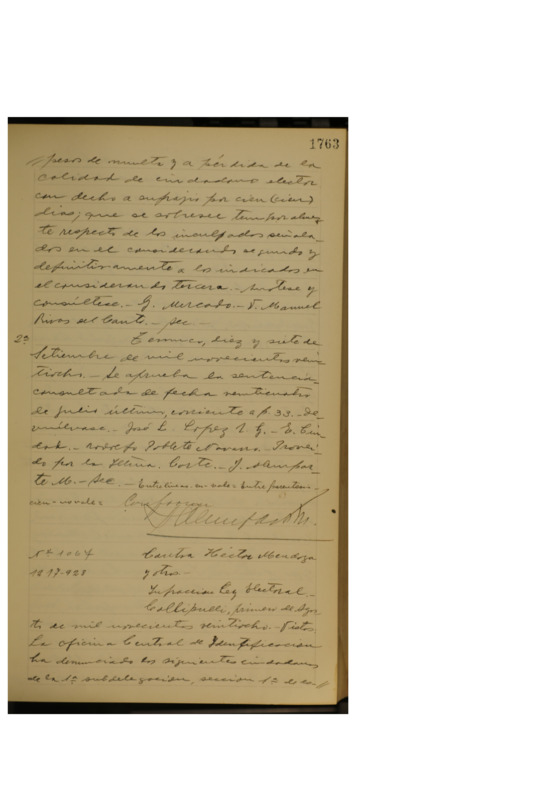 1763
pesos de multa y a pérdida de la
calidad de ciudadano elector
con decho a sufrajio por cien (cien)
dias; que se sobresee temporalmen
te respecto de los inculpados señala_
dos en el considerando segundo y
definitivamente a los indicados en
el considerando tercero.- Anótese y
consúltese.- G. Mercado.- V. Manuel
Rivas del Canto.- Sec.-
2a Temuco, diez y siete de
Setiembre de mil novecientos vein
tiocho.- Se aprueba la sentencia
consultada de fecha veinticuatro
de Julio último, corriente a f. 33.- De
vuélvase.- José L. Lopez U. G.- E.
Rodolfo Poblete Navarro.- Provei_
do por la Iltma. Corte.- J.
te M.- Sec.- Entre lineas
vale
No 1064 Contra Héctor Mendoza
1927-928 y otros-
Infraccion Ley Electoral.-
Collipulli, primero de Agos
to de mil novecientos veintiocho.- Vistos
La oficina Central de Identificacion
ha denunciado los siguientes ciudadanos
de la 1a subdelegacion, seccion 1a de